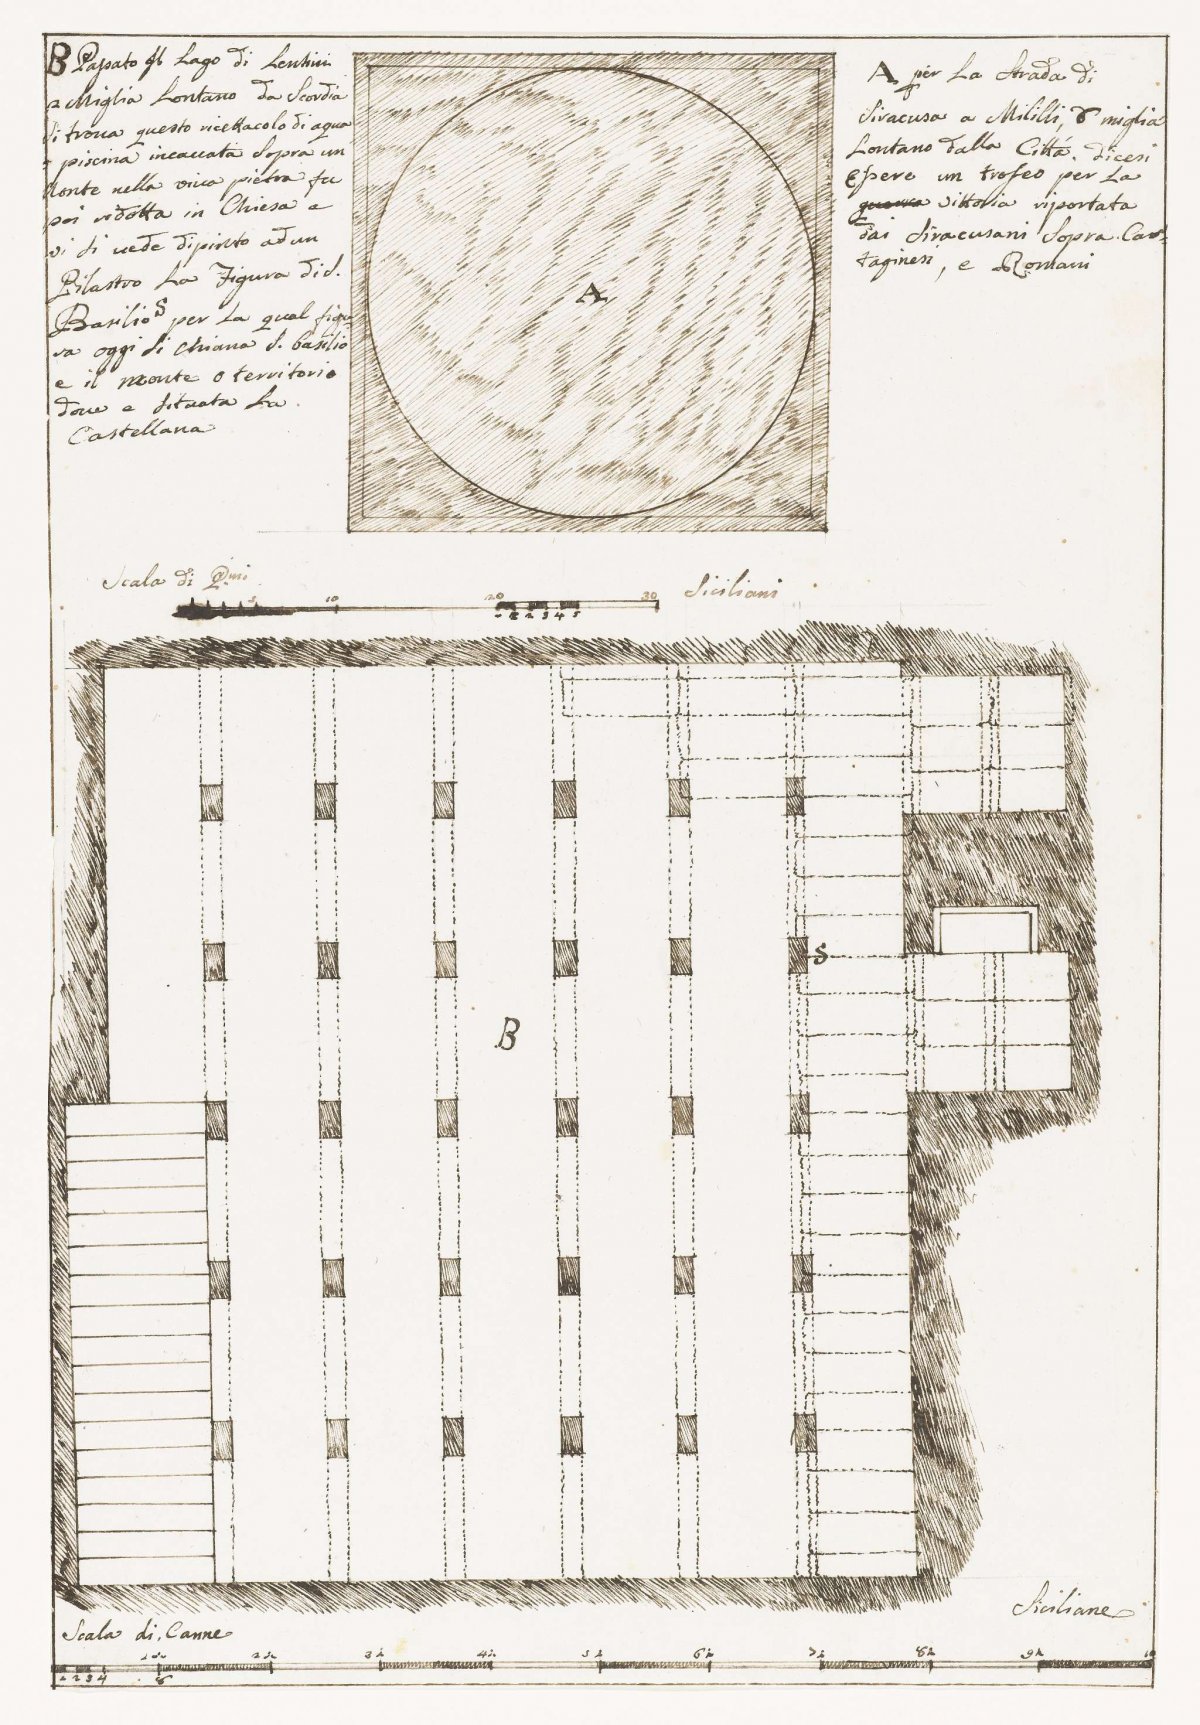 B Passato il Lago di Lentini
2 Miglia Lontano da Scordia
si troua questo ricettacolo di aqua
o piscina incauata sopra un
Monte nella viua pietra fu
poi ridotta in Chiesa e
vi si uede dipinto ad un
Pilastro La Figura di S.
Basilio S per La qual figu
ra oggi si chiana S. basilio
e il monte o territorio
doue e situata La
Castellana
A per La Strada di
Siracusa a Mililli, 8 miglia
Lontano dalla Città. dicesi
essere un trofeo per La
guerra vittoria riportata
dai Siracusani Sopra Car=
taginesi, e Romani
A
Scala di Pmi Siciliani
5 10 20 30
1 2 3 4 5
S
B
Siciliane
Scala di Canne
1 2 3 4 8
1c 2c 3c 4c 5c 6c 7c 8c 9c 10